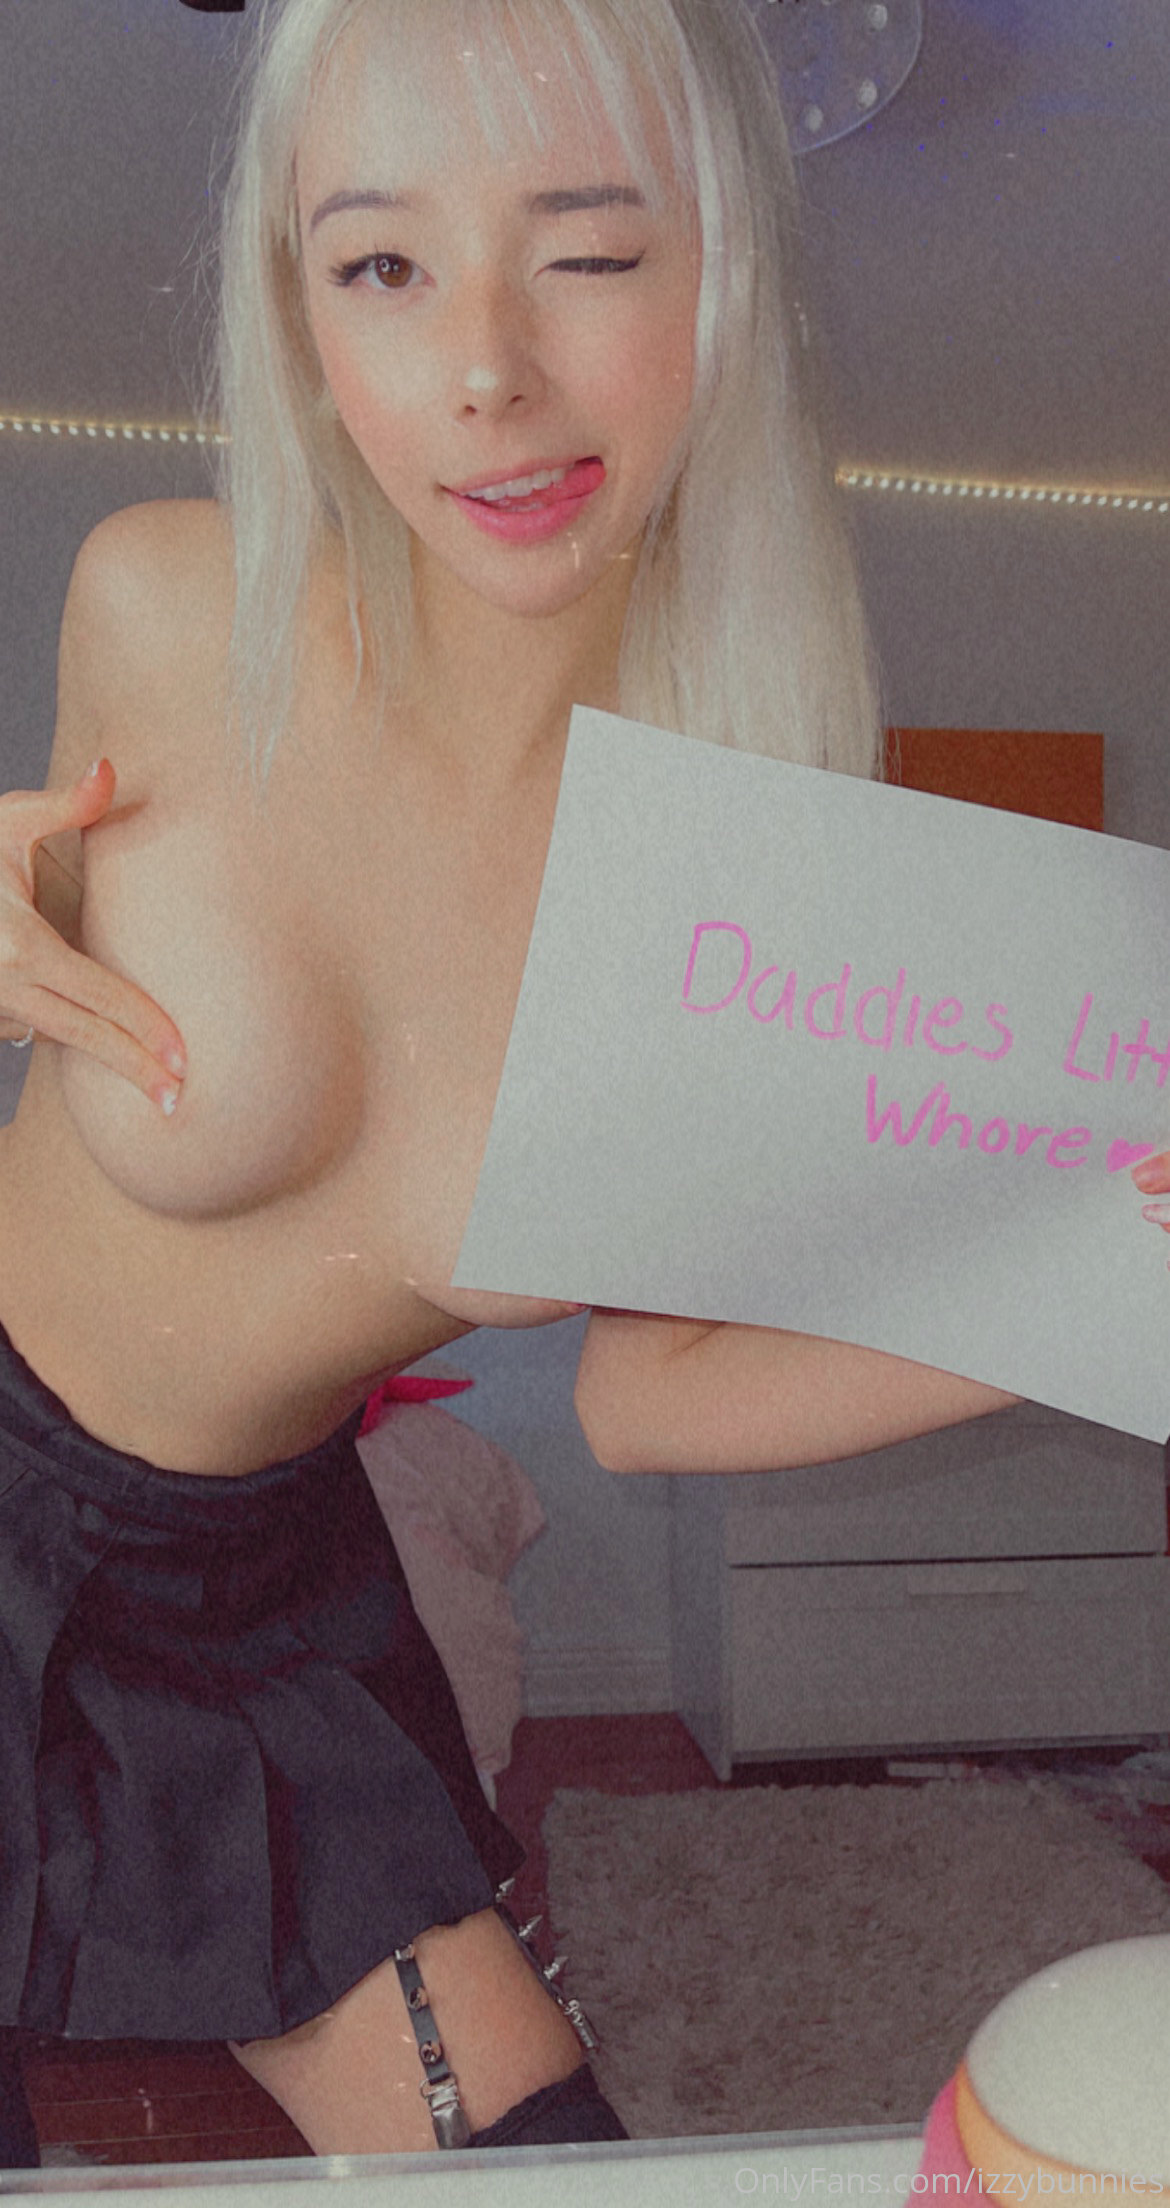 Daddies Litt
Whore ♥
OnlyFans.com/izzybunnies